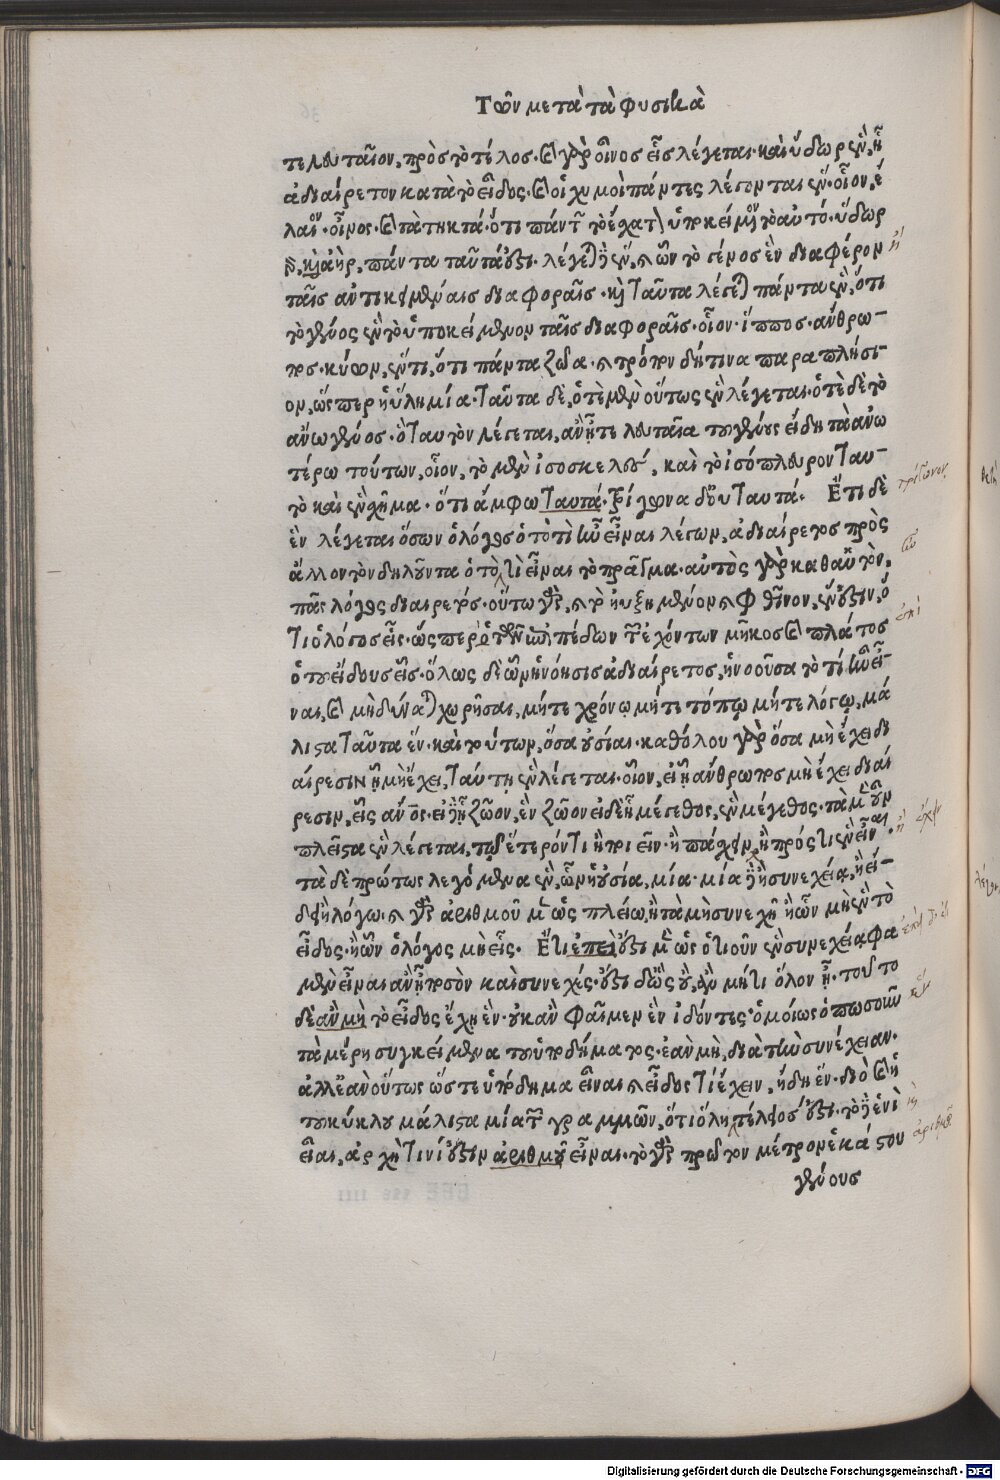 Τῶν μετὰ τὰ φυσικὰ
τελευταῖον, πρὸς τὸ τέλος. καὶ γὰρ οἶνος εἷς λέγεται. καὶ ὕδωρ ἓν, ᾗ
ἀδιαίρετον κατὰ τὸ εἶδος. καὶ οἱ χυμοὶ πάντες λέγονται ἓν. οἷον, ἔ
λαιον. οἶνος. καὶ τὰ τηκτά. ὅτι πάντων τὸ ἔσχατον ὑποκείμενον τὸ αὐτό. ὕδωρ
γὰρ, καὶ ἀὴρ, πάντα ταῦτά ἐστι. λέγεται δὲ ἓν, καὶ ὧν τὸ γένος ἓν διαφέρον
ταῖς ἀντικειμέναις διαφοραῖς. καὶ ταῦτα λέγεται πάντα ἓν, ὅτι
τὸ γένος ἓν τὸ ὑποκείμενον ταῖς διαφοραῖς. οἷον. ἵππος. ἄνθρω-
πος. κύων, ἕν τι, ὅτι πάντα ζῶα. καὶ τρόπον δή τινα παραπλήσι-
ον, ὥσπερ ἡ ὕλη μία. ταῦτα δὲ, ὁτὲ μὲν οὕτως ἓν λέγεται. ὁτὲ δὲ τὸ
ἄνω γένος. ὃ ταυτὸν λέγεται, ἂν ᾖ τελευταῖα τοῦ γένους εἴδη τὰ ἀνω
τέρω τούτων, οἷον, τὸ μὲν ἰσοσκελὲς, καὶ τὸ ἰσόπλευρον ταυ-
τὸ καὶ ἓν σχῆμα. ὅτι ἄμφω ταυτά. τρίγωνα δ' οὐ ταυτά. Ἔτι δὲ
ἓν λέγεται ὅσων ὁ λόγος ὁ τὸ τί ἦν εἶναι λέγων, ἀδιαίρετος πρὸς
ἄλλον τὸν δηλοῦντα ὁ τὸ τὶ εἶναι τὸ πρᾶγμα. αὐτὸς γὰρ καθ' αὑτὸν,
πᾶς λόγος διαιρετός. οὕτω γὰρ, καὶ τὸ ηὐξημένον καὶ φθῖνον, ἕν ἐστιν, ὅ
τι ὁ λόγος εἷς. ὥσπερ ὁ τῶν ἐπιπέδων τῶν ἐχόντων μῆκος καὶ πλάτος
ὁ τοῦ εἴδους εἷς. ὅλως δὲ ὧν ἡ νόησις ἀδιαίρετος, ἡ νοοῦσα τὸ τί ἦν εἶ-
ναι, καὶ μὴ δύναται χωρῆσαι, μήτε χρόνῳ μήτε τόπῳ μήτε λόγῳ, μά
λιστα ταῦτα ἕν. καὶ τούτων, ὅσα οὐσίαι. καθόλου γὰρ ὅσα μὴ ἔχει δι
αίρεσιν ᾗ μὴ ἔχει, ταύτῃ ἓν λέγεται. οἷον, εἰ ᾗ ἄνθρωπος μὴ ἔχει διαί
ρεσιν, εἷς ἄνος. εἰ δὲ ᾗ ζῶον, ἓν ζῶον εἰ δὲ ᾗ μέγεθος, ἓν μέγεθος. τὰ μὲν οὖν
πλεῖστα ἓν λέγεται, τῷ ἕτερόν τι ἢ ποιεῖν. ἢ πάσχειν, ἢ πρός τι ἓν εἶναι.
τὰ δὲ πρώτως λεγόμενα ἓν, ὧν ἡ οὐσία, μία. μία δὲ ἢ συνεχείᾳ, ἢ εἴ-
δει ἢ λόγῳ. καὶ γὰρ ἀριθμοῦμεν ὡς πλείω, ἢ τὰ μὴ συνεχῆ ἢ ὧν μὴ ἓν τὸ
εἶδος. ἢ ὧν ὁ λόγος μὴ εἷς. Ἔτι ἐπεί ἐστι μὲν ὡς ὁτιοῦν ἓν συνεχείᾳ φα
μὲν εἶναι ἂν ᾖ ποσὸν καὶ συνεχές. ἔστι δ' ὡς οὔ, ἂν μή τι ὅλον ᾖ. τοῦτο
δὲ ἂν μὴ τὸ εἶδος ἔχῃ ἕν. οὐκ ἂν φαῖμεν ἓν ἰδόντες ὁμοίως ὁπωσοῦν
τὰ μέρη συγκείμενα τοῦ ὑποδήματος. ἐὰν μὴ, διὰ τὴν συνέχειαν.
ἀλλ' ἐὰν οὕτως ὥστε ὑπόδημα εἶναι καὶ εἶδος τὶ ἔχειν, ἤδη ἕν. διὸ καὶ ἡ
τοῦ κύκλου μάλιστα μία τῶν γραμμῶν, ὅτι ὅλη, τέλειός ἐστι. τὸ δὲ ἑνὶ
εἶναι, ἀρχῇ τινί ἐστιν ἀριθμοῦ εἶναι. τὸ γὰρ πρῶτον μέτρον ἑκάστου
γένους
Digitalisierung gefördert durch die Deutsche Forschungsgemeinschaft - DFG